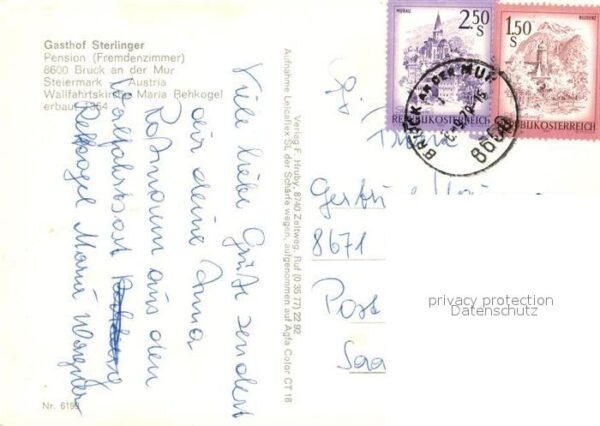 Gasthof Sterlinger
Pension (Fremdenzimmer)
8600 Bruck an der Mur
Steiermark Austria
Wallfahrtskirche Maria Rehkogel
erbaut 1354
Viele liebe Grüße sendet
dir deine Anna
aus den
Wallfahrtsort
Rehkogel Maria
Nr. 619
Verlag F. Hruby, 8740 Zeltweg, Ruf (0 35 77) 22 92
Aufnahme Leicaflex SL der Schärfe wegen, aufgenommen auf Agfa Color CT 18
MURAU
2.50
S
REPUBLIK ÖSTERREICH
BLUDENZ
1.50
S
REPUBLIK ÖSTERREICH
BRUCK AN DER MUR
8600
8671
Post
Saa
privacy protection
Datenschutz